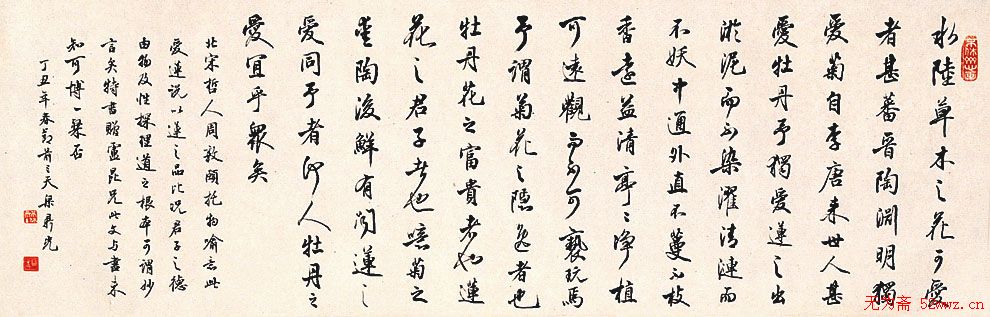 水陸草木之花可愛
者甚蕃晉陶淵明獨
愛菊自李唐来世人甚
愛牡丹予獨愛蓮之出
淤泥而不染濯清漣而
不妖中通外直不蔓不枝
香遠益清亭〻净植
可遠觀而不可褻玩焉
予謂菊花之隱逸者也
牡丹花之富貴者也蓮
花之君子者也噫菊之
愛陶後鮮有聞蓮之
愛同予者何人牡丹之
愛宜乎衆矣
北宋哲人周敦頤托物喻志此
愛蓮説以蓮之品比況君子之德
由物及性探理道之根本可謂妙
言矣特書贈靈昆兄此文与書未
知可博一粲否
丁丑年春節前三天
无为斋 52wwz.cn